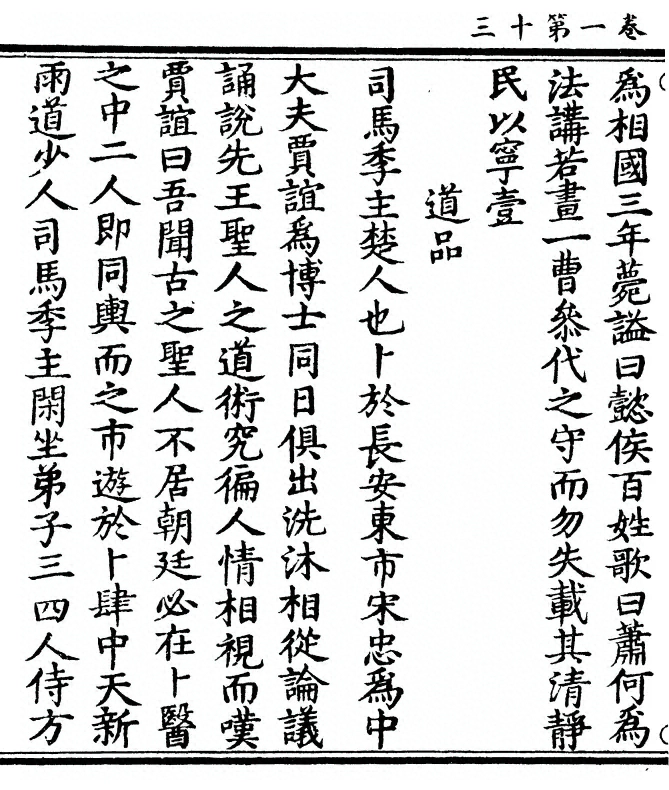 卷一第十三
爲相國三年薨謚曰懿侯百姓歌曰蕭何爲
法講若畫一曹叅代之守而勿失載其清靜
民以寧壹
道品
司馬季主楚人也卜於長安東市宋忠爲中
大夫賈誼爲博士同日俱出洗沐相從論議
誦說先王聖人之道術究徧人情相視而嘆
賈誼曰吾聞古之聖人不居朝廷必在卜醫
之中二人即同輿而之市遊於卜肆中天新
雨道少人司馬季主閑坐弟子三四人侍方